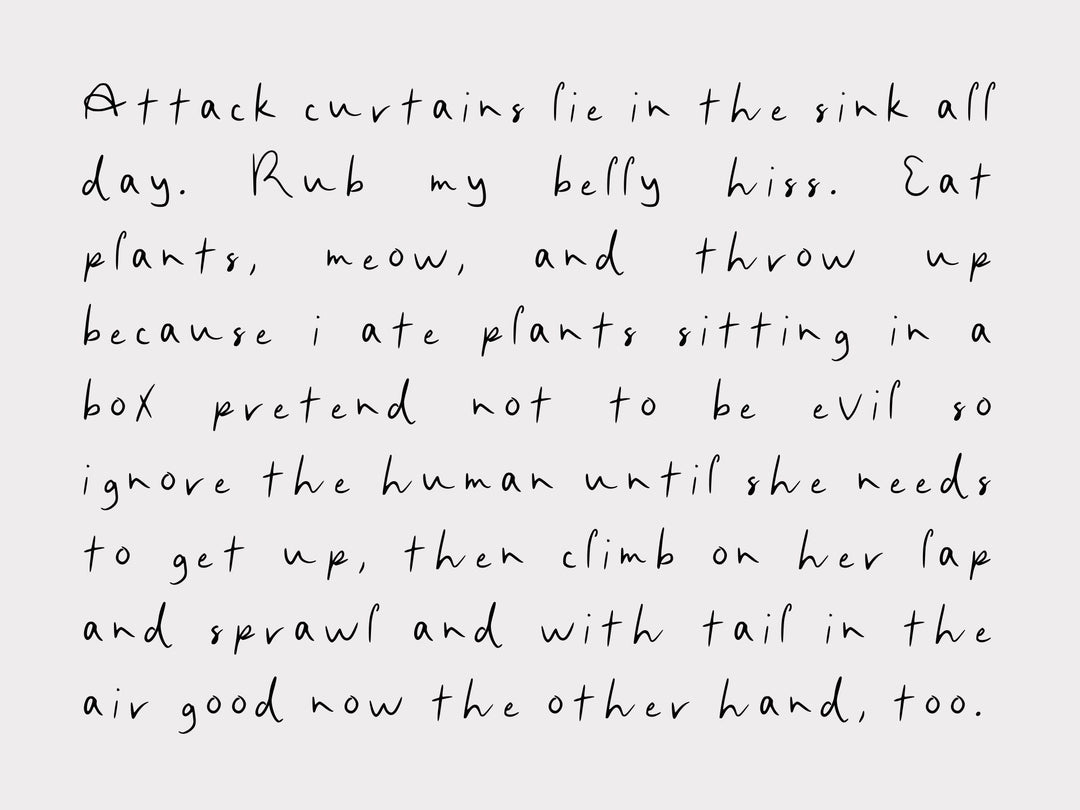 Attack curtains lie in the sink all
day. Rub my belly hiss. Eat
plants, meow, and throw up
because i ate plants sitting in a
box pretend not to be evil so
ignore the human until she needs
to get up, then climb on her lap
and sprawl and with tail in the
air good now the other hand, too.